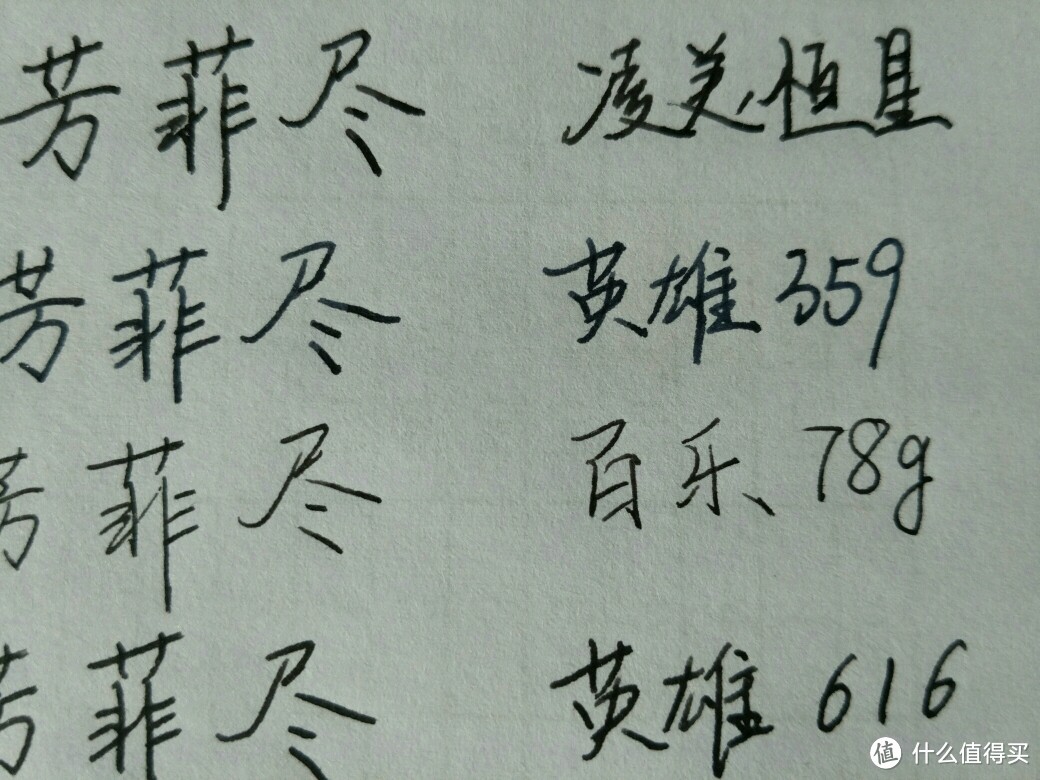 芳菲尽 凌美恒星
芳菲尽 英雄359
芳菲尽 百乐78g
芳菲尽 英雄616
值 什么值得买